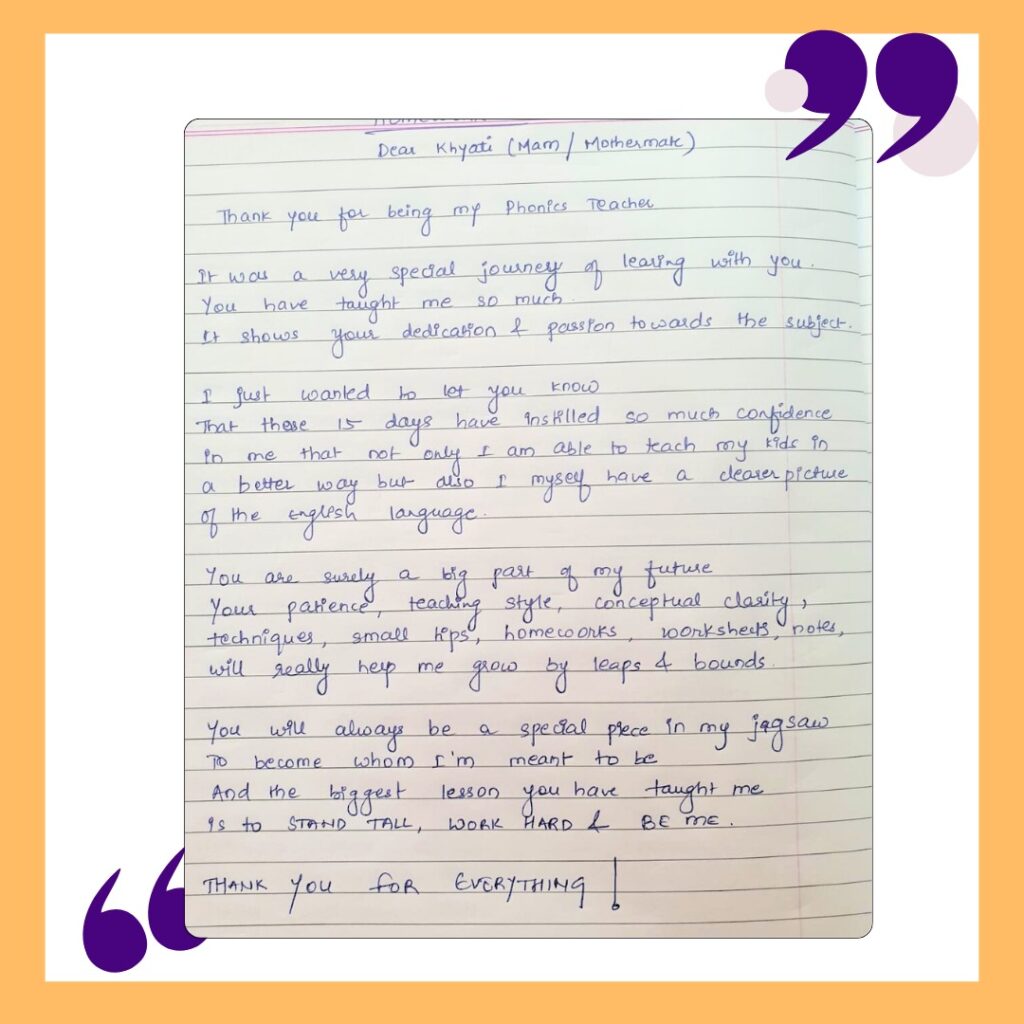 Dear Khyati (Mam / Mothermate)
Thank you for being my Phonics Teacher
It was a very special journey of learing with you.
You have taught me so much.
It shows your dedication & passion towards the subject.
I just wanted to let you know
That these 15 days have instilled so much confidence
in me that not only I am able to teach my kids in
a better way but also I myself have a clearer picture
of the english language.
You are surely a big part of my future
Your patience, teaching style, conceptual clarity,
techniques, small tips, homeworks, worksheets, notes,
will really help me grow by leaps & bounds.
You will always be a special piece in my jigsaw
To become whom I'm meant to be
And the biggest lesson you have taught me
is to STAND TALL, WORK HARD & BE ME.
THANK YOU FOR EVERYTHING!